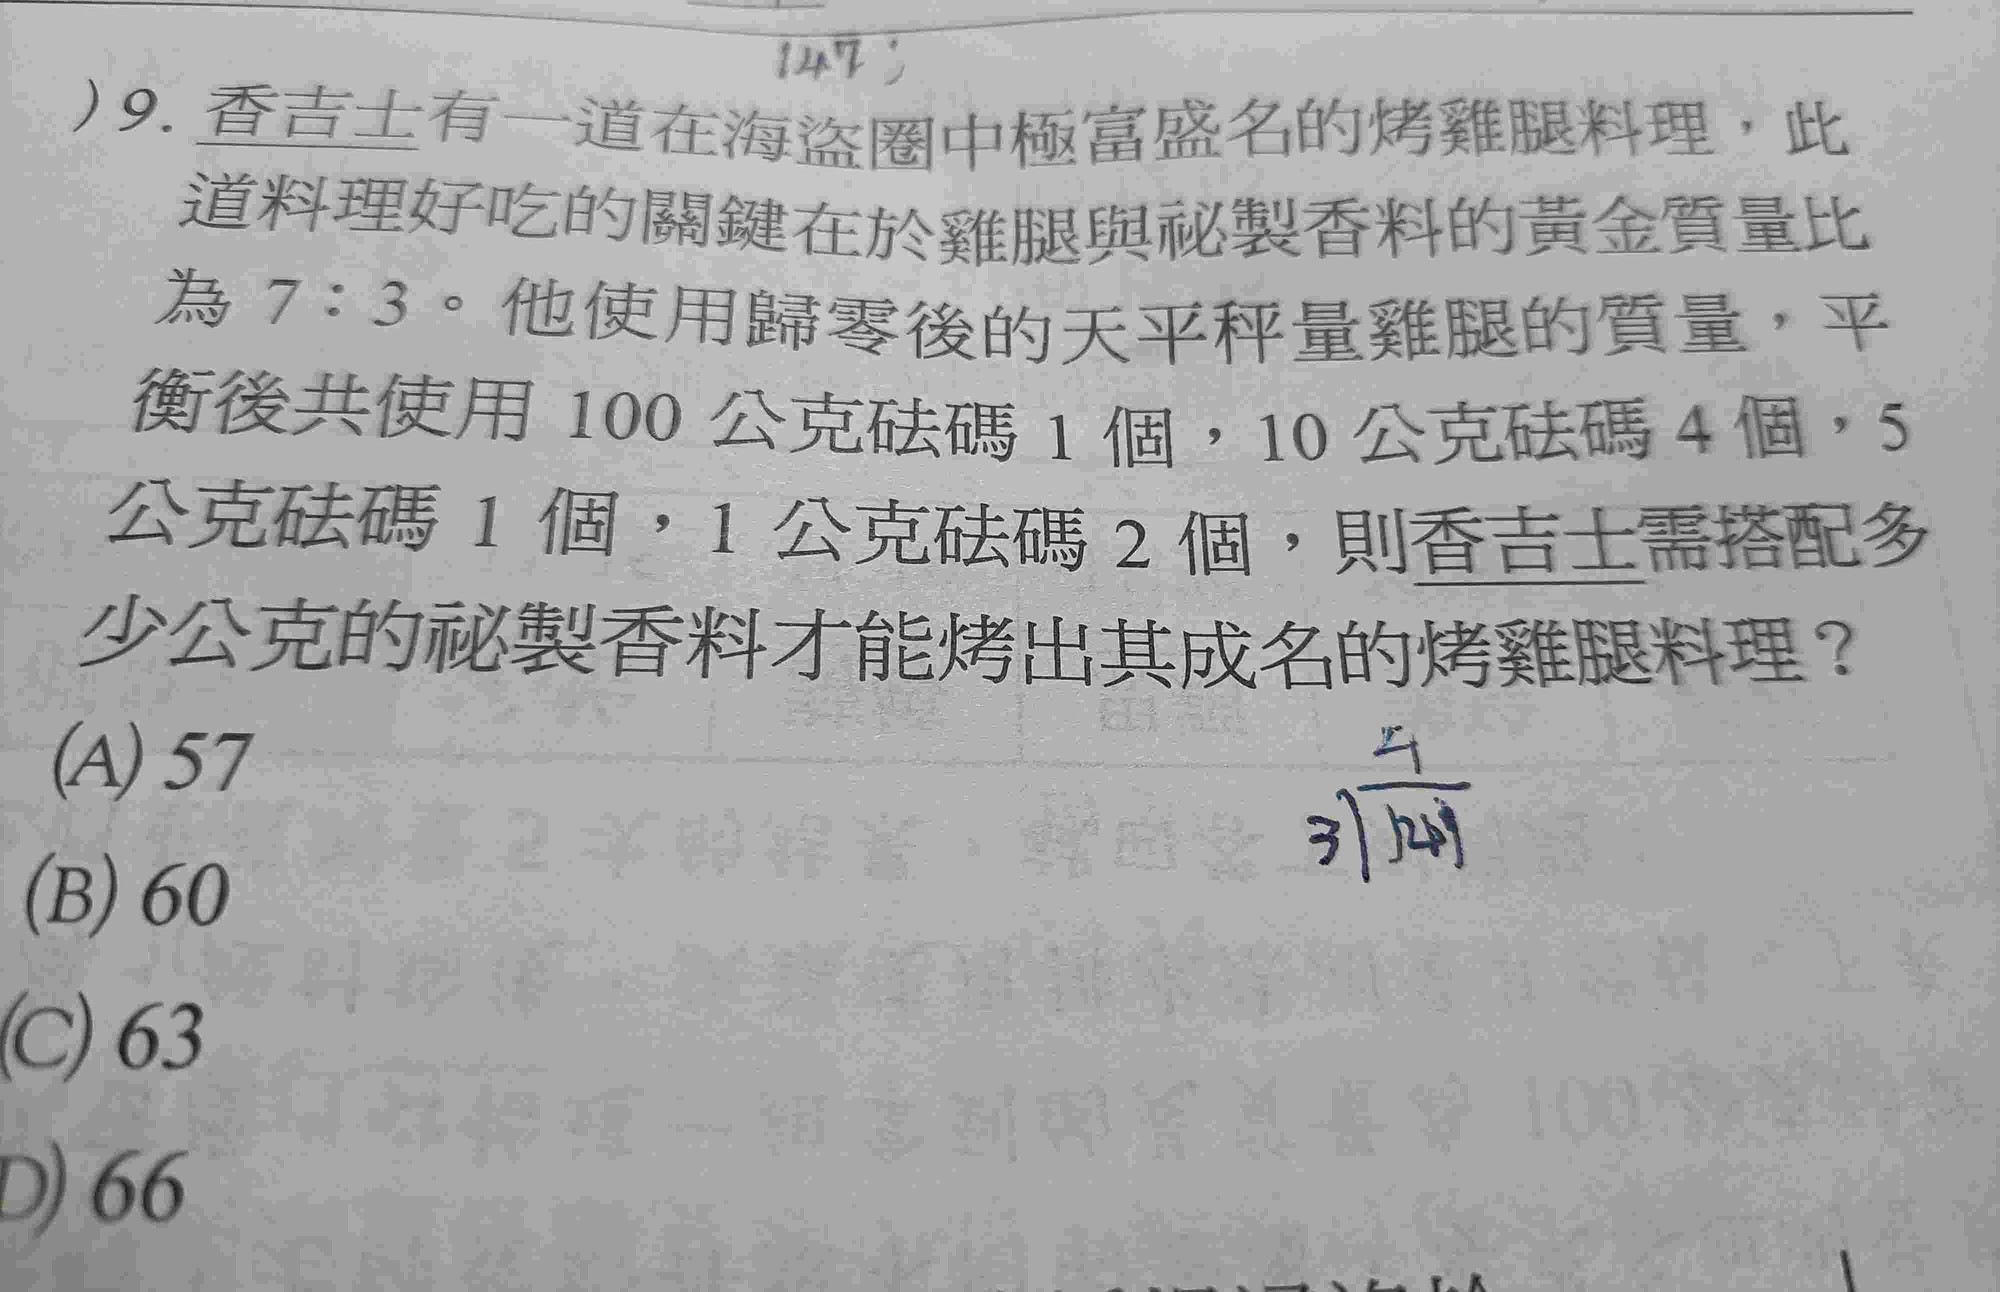 147;
)9. 香吉士有一道在海盜圈中極富盛名的烤雞腿料理，此
道料理好吃的關鍵在於雞腿與祕製香料的黃金質量比
為 7：3。他使用歸零後的天平秤量雞腿的質量，平
衡後共使用 100 公克砝碼 1 個，10 公克砝碼 4 個，5
公克砝碼 1 個，1 公克砝碼 2 個，則香吉士需搭配多
少公克的祕製香料才能烤出其成名的烤雞腿料理？
(A) 57
(B) 60
(C) 63
D) 66
4
3